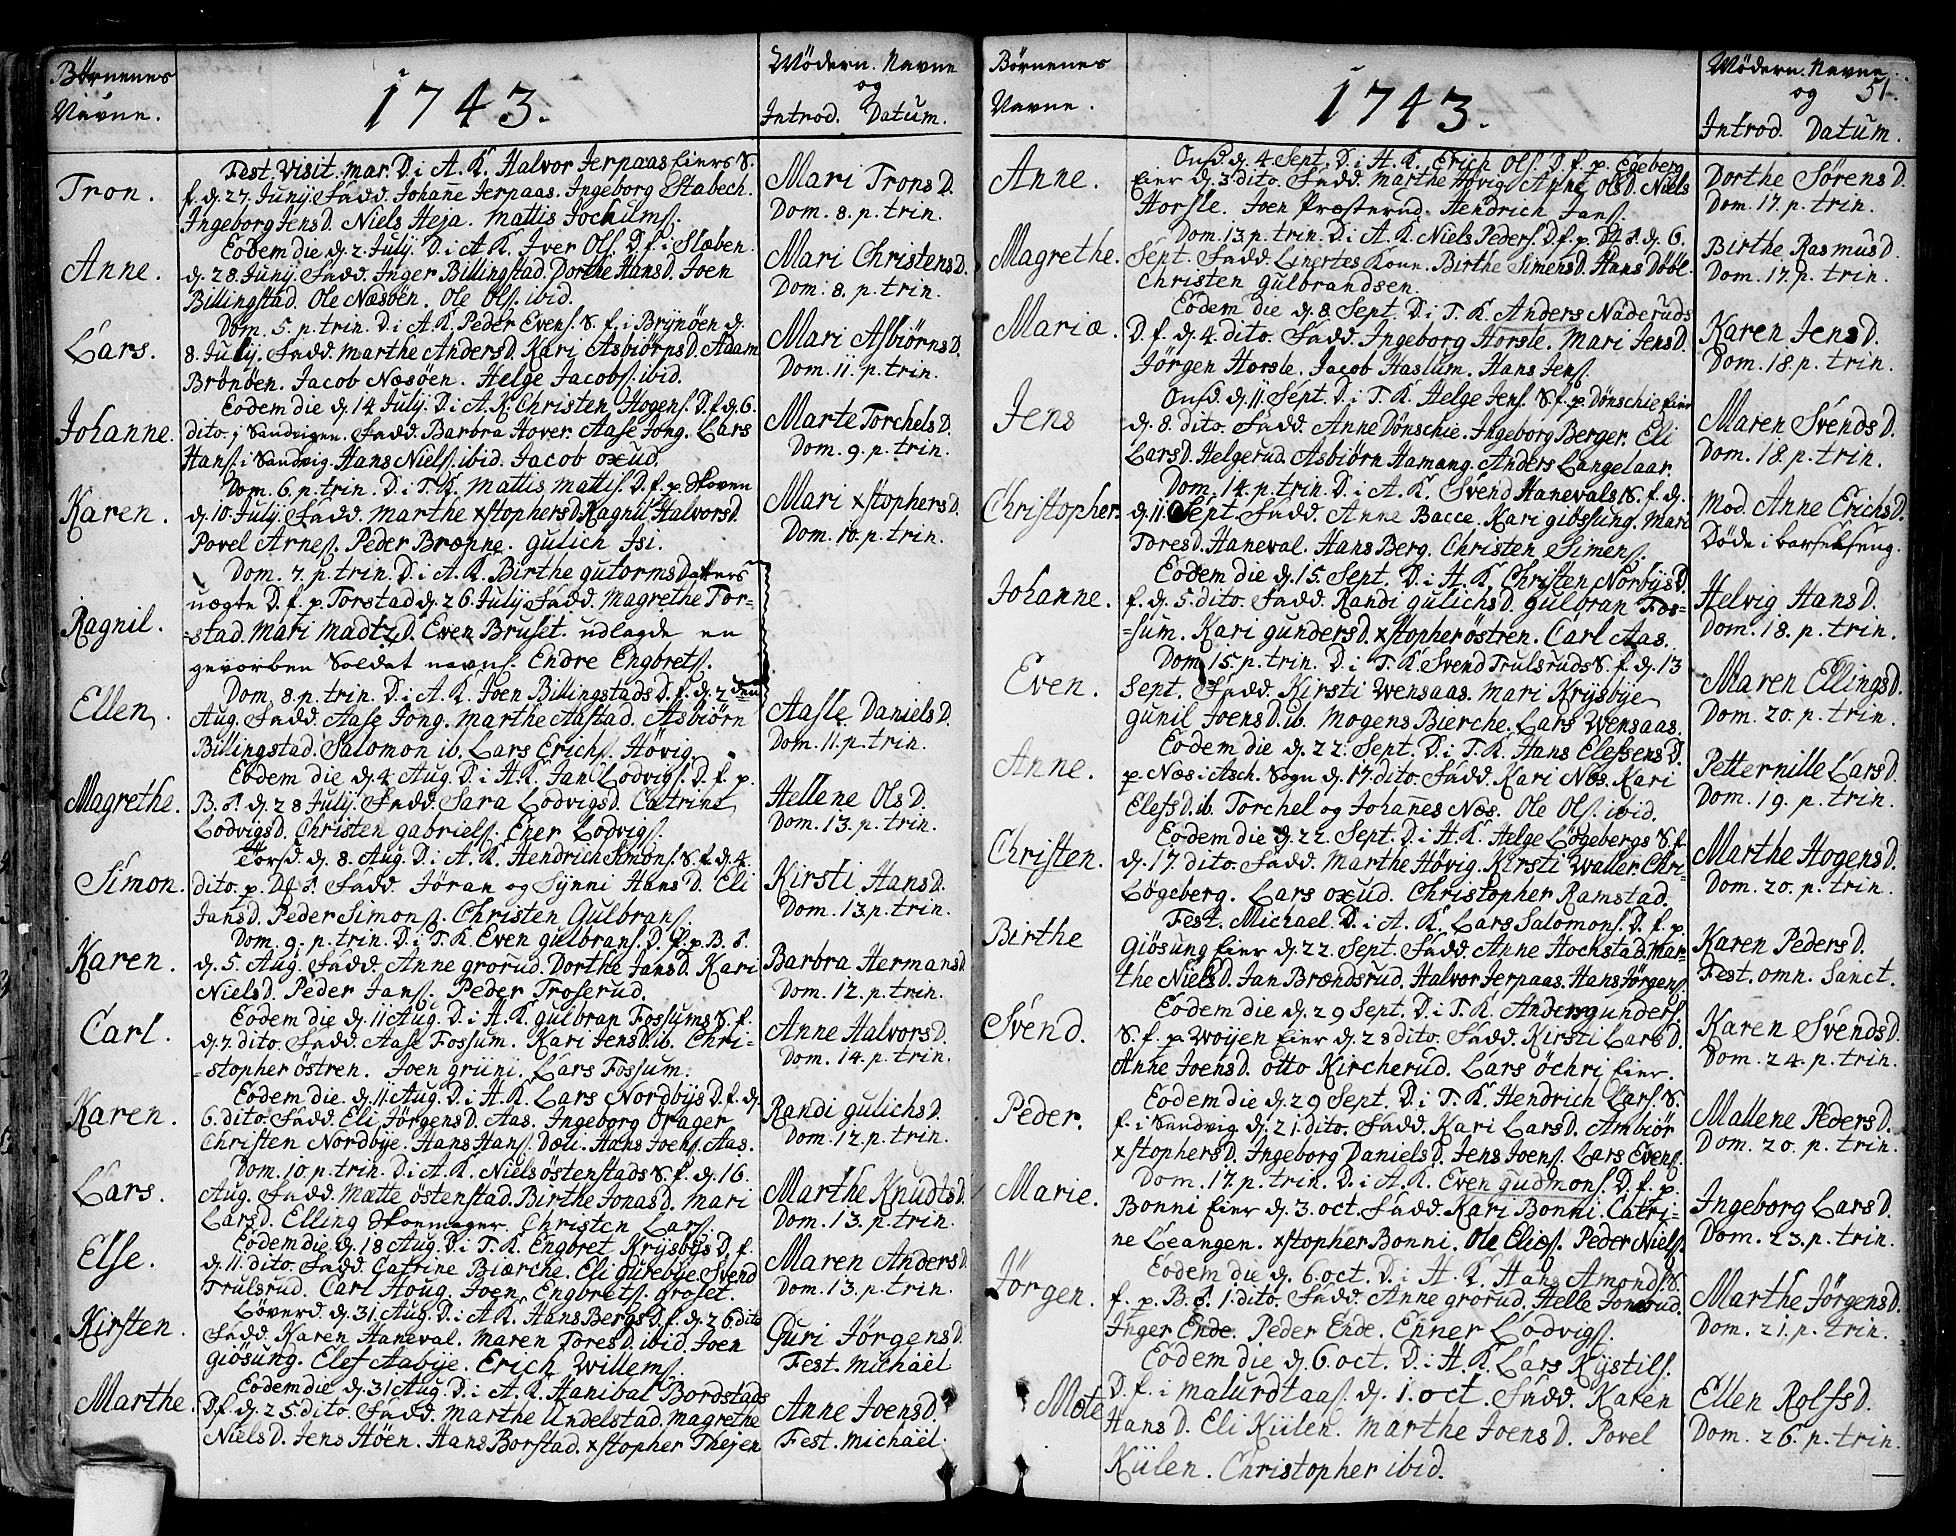 Børnenes
Navne.
1743.
Mödern. Navne
og
Introd. Datum.
Tron.
Fest. Visit. mar. D. i A. K. Halvor Jerpaas Eiers S.
f. d. 27. Junij. Fadd. Johane Jerpaas. Ingeborg Stabech.
Ingeborg JensD. Niels Heja. Mattis Jochilms.
Mari TronsD.
Dom. 8. p. trin.
Anne.
Eodem die d. 2 Julij. D. i A. K. Iver Ols. D. f. i Slæben.
d. 28 Junij. Fadd. Inger Billingstad. Dorthe HansD. Joen
Billingstad. Ole Næsöen. Ole Ols. ibid.
Mari ChristensD.
Dom. 8. p. trin.
Lars.
Dom. 5. p. trin. D. i A. K. Peder Evens. S. f. i Brynöen d.
8. Julij. Fadd. Marthe AndersD. Kari AsbiörnsD. Adam
Brönöen. Jacob Næsöen. Helge Jacobs. ibid.
Mari AsbiörnsD.
Dom. 11. p. trin.
Johanne.
Eodem die d. 14 Julij. D. i A. K. Christen Hogens. D. f. d. 6.
dito. i Sandvigen. Fadd. Barbra Hover. Aase Jong. Lars
Hans. i Sandvig. Hans Niels. ibid. Jacob oxud.
Marte TorchelsD.
Dom. 9. p. trin.
Karen.
Dom. 6. p. trin. D. i T. K. Mattis Mattis. D. f. p. Skoven
d. 10. Julij. Fadd. Marthe xstophersD. Ragnil HalvorsD.
Povel Arnes. Peder Brænne. Gulich Isi.
Mari xstophersD.
Dom. 10. p. trin.
Ragnil.
Dom. 7. p. trin. D. i A. K. Birthe gutormsDatters
uægte D. f. p. Torstad d. 26. Julij Fadd. Magrethe Tor=
=stad. Mari MadtzD. Even Bruset. udlagde en
gevorben Soldat navns. Endre Engbrets.
Ellen.
Dom. 8. p. trin. D. i A. K. Joen Billingstads D. f. d. 2 den
Aug. Fadd. Aase Jong. Marthe Aastad. Asbiörn
Billingstad. Salomon ib. Lars Erichs. Hövig.
Aasle DanielsD.
Dom. 11. p. trin.
Magrethe.
Eodem die d. 4 Aug. D. i A. K. Jan Lodvigs. D. f. p.
B. d. 28 Julij. Fadd. Sara LodvigsD. Catrine
LodvigsD. Christen gabriels. Ener Lodvigs.
Hellene OlsD.
Dom. 13. p. trin.
Simon.
Torsd. d. 8. Aug. D. i A. K. Hendrich Simons. S. f. d. 4.
dito. p. Fadd. Jöran og Synni HansD. Eli
JansD. Peder Simons. Christen Gulbrans.
Kirsti HansD.
Dom. 13. p. trin.
Karen.
Dom. 9. p. trin. D. i T. K. Even gulbrans. D. f. p. B.
d. 5. Aug. Fadd. Anne grorud. Dorthe JansD. Kari
NielsD. Peder Jans. Peder Troserud.
Barbra HermansD.
Dom. 12. p. trin.
Carl.
Eodem die d. 11 Aug. D. i A. K. gulbran Fossums S. f.
d. 7. dito. Fadd. Aase Fossum. Kari JensD. ib. Chri=
=stopher östren. Joen griini. Lars Fossum.
Anne HalvorsD.
Dom. 14. p. trin.
Karen.
Eodem die. d. 11 Aug. D. i A. K. Lars Nordbijs D. f. d.
6. dito. Fadd. Eli JörgensD. Aas. Ingeborg Orager
Christen Nordbye. Hans Hans. Dæli. Hans Joens. Aas.
Randi gulichsD.
Dom. 12. p. trin.
Lars.
Dom. 10. p. trin. D. i A. K. Niels östenstads S. f. d. 16.
Aug. Fadd. Mætte östenstad. Birthe JonasD. Mari
LarsD. Elling Skoemager. Christen Lars.
Marthe KnudtsD.
Dom. 13. p. trin.
Else.
Eodem die d. 18 Aug. D. i T. K. Engbret Krysbys D. f.
d. 11. dito. Fadd. Catrine Biærche. Eli gurebye. Svend
Trulsrud. Carl Houg. Joen Engbrets. groset.
Maren AndersD.
Dom. 13. p. trin.
Kirsten.
Löverd. d. 31 Aug. D. i A. K. Hans Bergs D. f. d. 26 dito
Fadd. Karen Haneval. Maren ToresD. ibid. Joen
giösung. Elef Aabije. Erich Willems.
Guri JörgensD.
Fest. Michaël
Marthe.
Eodem die d. 31 Aug. D. i A. K. Hanibal Bordstads
D. f. d. 25. dito. Fadd. Marthe Undelstad. Magrethe
NielsD. Jens Höen. Hans Borstad. xstopher Thejen
Anne JoensD.
Fest. Michaël.
Børnenes
Navne.
1743.
Mödern. Navne
og
51.
Introd. Datum.
Anne.
Onsd. d. 4 Sept. D. i A. K. Erich Ols. D. f. p. Egeberg
Eier d. 3 dito. Fadd. Marthe Hövig. Anne OlsD. Niels
Horsle. Joen Præsterud. Hendrich Jans.
Dorthe SörensD.
Dom. 17. p. trin.
Magrethe.
Dom. 13. p. trin. D. i A. K. Niels Peders. D. f. p. d. 6.
Sept. Fadd. Linertes Kone. Birthe SimensD. Hans Döbl.
Christen Gulbrandsen.
Birthe RasmusD.
Dom. 17. p. trin.
Mariæ.
Eodem die d. 8. Sept. D. i T. K. Anders Naderuds
D. f. d. 4. dito. Fadd. Ingeborg Horsle. Mari JensD.
Jörgen Horsle. Jacob Haslum. Hans Jens.
Karen JensD.
Dom. 18. p. trin.
Jens
Onsd. d. 11 Sept. D. i T. K. Helge Jens. S. f. p. Dönschie Eier
d. 8. dito. Fadd. Anne Dönschie. Ingeborg Berger. Eli
LarsD. Helgerud. Asbiörn Hamang. Anders Langelaar.
Maren SvendsD.
Dom. 18. p. trin.
Christopher.
Dom. 14. p. trin. D. i A. K. Svend Hanevals S. f. d.
d. 11 Sept. Fadd. Anne Bacce. Kari giössung. Mari
ToresD. Haneval. Hans Berg. Christen Simens.
Mod. Anne ErichsD.
Døde i barselseng.
Johanne.
Eodem die d. 15. Sept. D. i A. K. Christen Norbijs D.
f. d. 5. dito. Fadd. Randi gulichsD. gulbran Fos=
=sum. Kari gundersD. xstopher östren. Carl Aas.
Helvig HansD.
Dom. 18. p. trin.
Even.
Dom 15. p. trin. D. i T. K. Svend Trulsruds S. f. d. 13
Sept. Fadd. Kirsti Wensaas. Mari Krysbye
gunil JoensD. ib. Mogens Bierche. Lars Wensaas.
Maren EllingsD.
Dom. 20. p. trin.
Anne.
Eodem die d. 22. Sept. D. i T. K. Hans Elefsens D.
p. Næs i Asch. Sogn d. 17. dito. Fadd. Kari Næs. Kari
ElefsD. ib. Torchel og Johanes Næs. Ole Ols. ibid.
Petternille LarsD.
Dom. 19. p. trin.
Christen.
Eodem die d. 22. Sept. D. i A. K. Helge Lögebergs S. f.
d. 17. dito. Fadd. Marthe Hövig. Kirsti Waller. Chri=
Lögeberg. Lars oxud. Christopher Ramstad.
Marthe HogensD.
Dom. 20. p. trin.
Birthe
Fest. Michael. D. i A. K. Lars Salomons. D. f. p.
Giösung Eier d. 22. Sept. Fadd. Anne Hochstad. Mar=
the NielsD. Jan Brændsrud. Halvor Jerpaas. Hans Jörgens.
Karen PedersD.
Fest. omn. Sanct.
Svend.
Eodem die d. 29 Sept. D. i T. K. Anders gunders.
S. f. p. Woijen Eier d. 28 dito. Fadd. Kirsti LarsD.
Anne JoensD. otto Kircherud. Lars öchri Eier.
Karen SvendsD.
Dom. 24. p. trin.
Peder.
Eodem die d. 29 Sept. D. i T. K. Hendrich Lars. S.
f. i Sandvig d. 21. dito. Fadd. Kari LarsD. Ambiör
xstophersD. Ingeborg DanielsD. Jens Joens. Lars Evens.
Mallene PedersD.
Dom. 20. p. trin.
Marie.
Dom. 17. p. trin. D. i A. K. Even gudmons. D. f. p.
Bonni Eier d. 3. oct. Fadd. Kari Bonni. Catri=
ne Leangen. xstopher Bonni. Ole Elies. Peder Niels.
Ingeborg LarsD.
Dom. 23. p. trin.
Jörgen.
Eodem die d. 6. oct. D. i A. K. Hans Amonds. S.
f. p. B. 1. dito. Fadd. Anne grorud. Helle Jonsrud.
Inger Ende. Peder Ende. Enner Lodvigs.
Marthe JörgensD.
Dom. 21. p. trin.
Mote
Eodem die d. 6. oct. D. i A. K. Lars Kystils.
D. f. i Malurdtaas. d. 1. oct. Fadd. Karen
HansD. Eli Kiilen. Marthe JoensD. Povel
Kiilen. Christopher ibid.
Ellen RolfsD.
Dom. 26. p. trin.